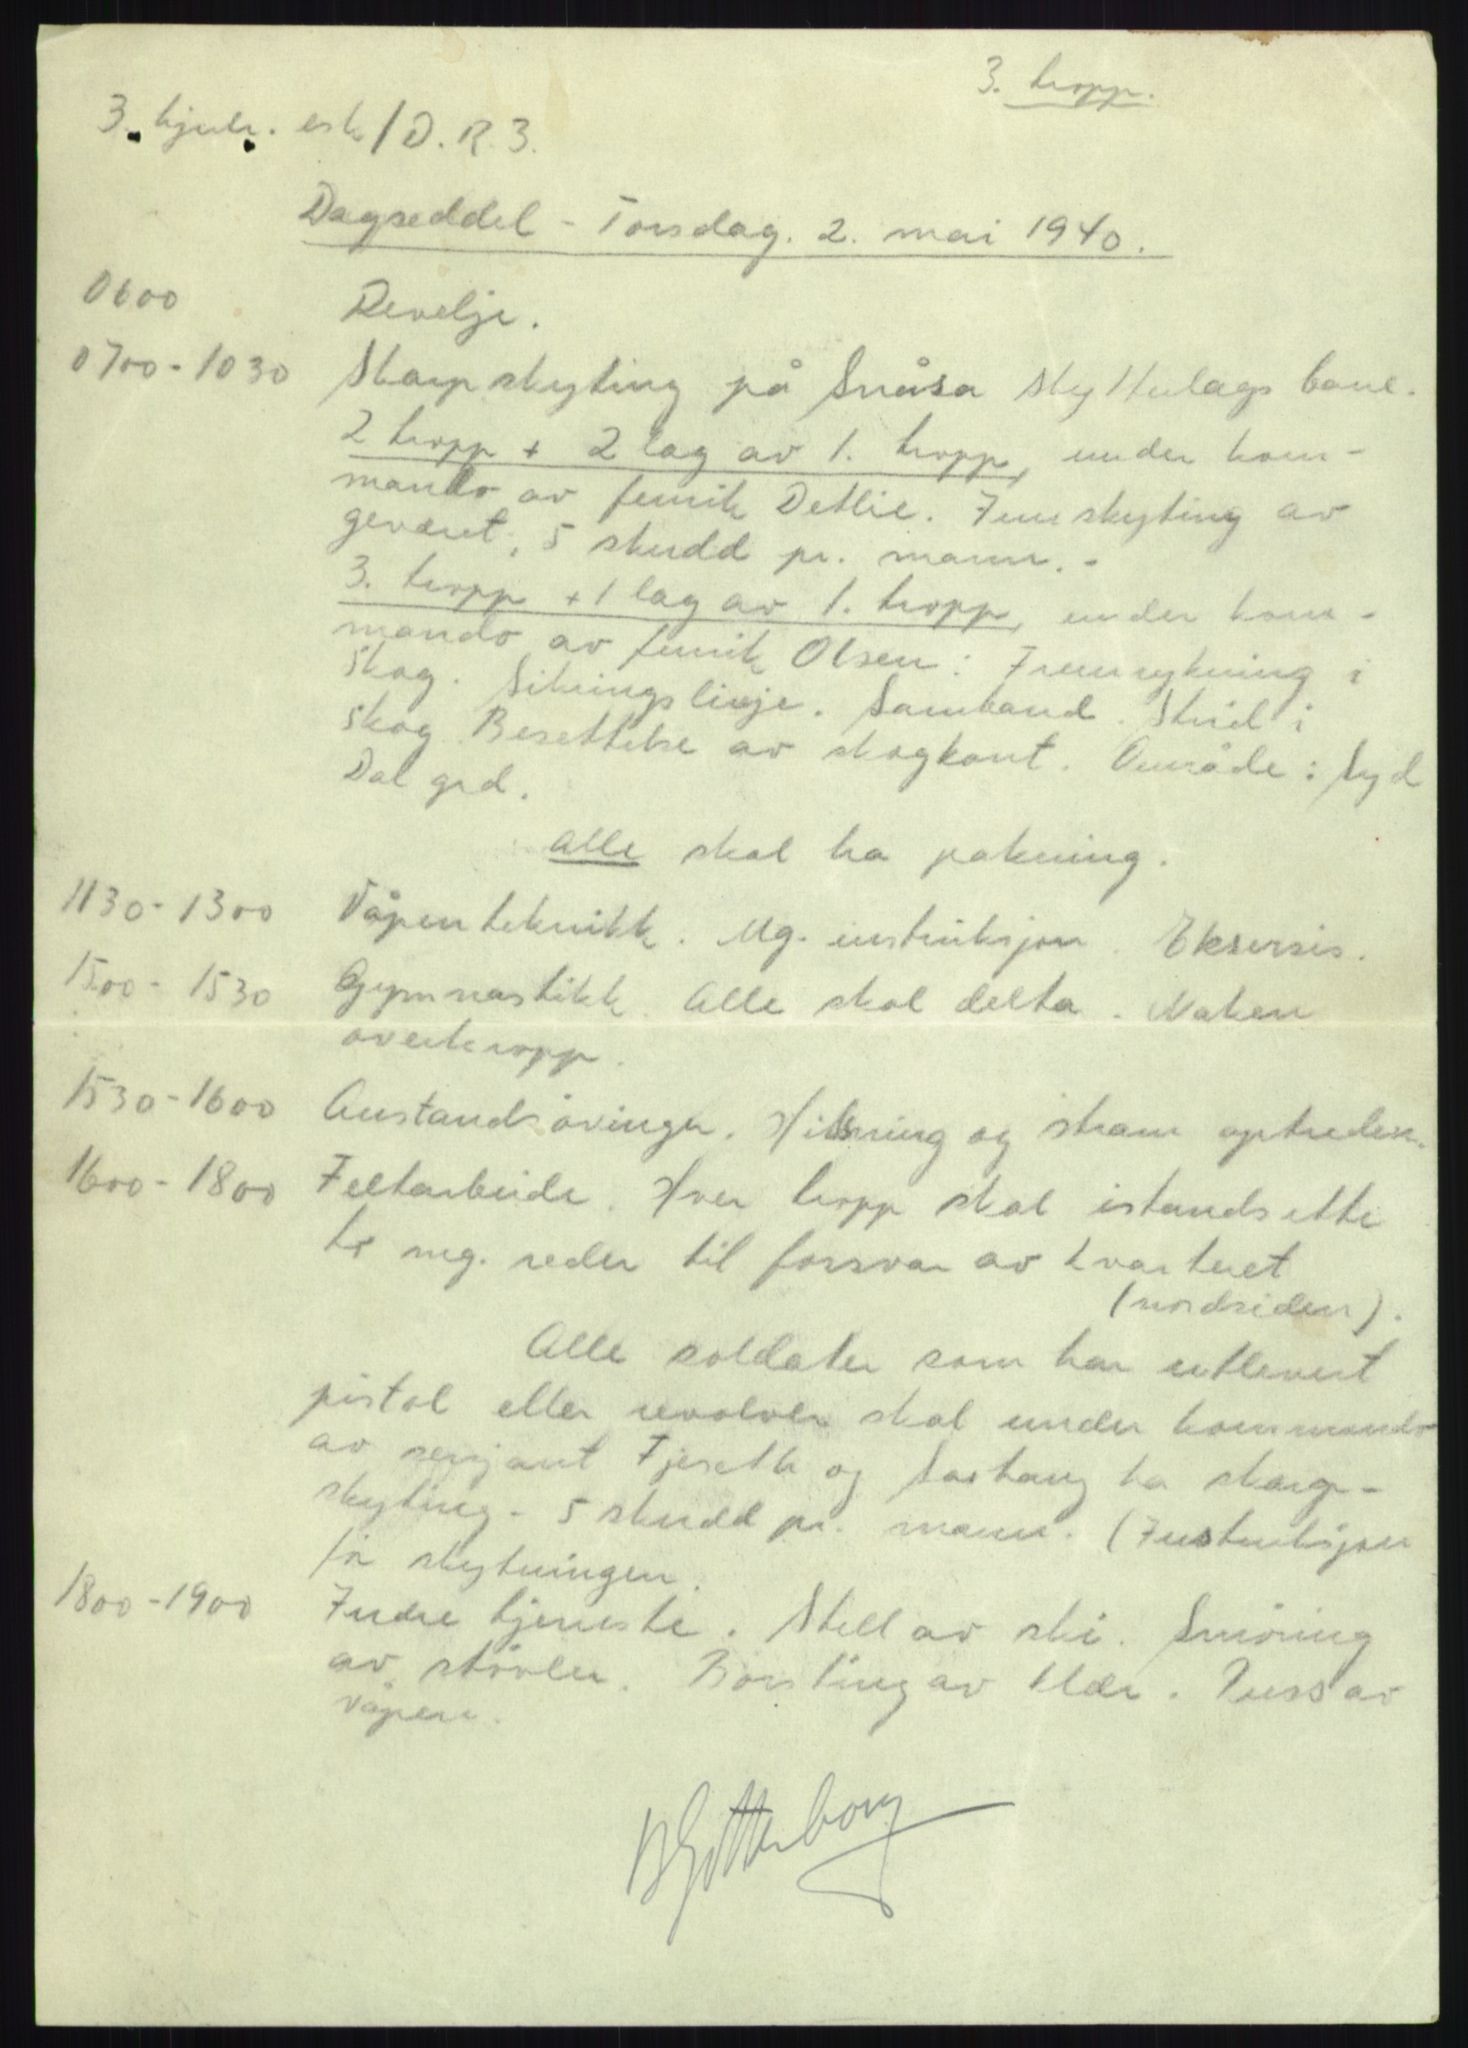 3. tropp.
3. hjulr. esk/D.R.3.
Dagseddel - Torsdag. 2. mai 1940.
0600 Revelje.
0700-1030 Skarpskyting på Snåsa Skytterlags bane.
2 tropp + 2 lag av 1. tropp, under kom-
mando av fenrik Detlie. Innskyting av
geværet, 5 skudd pr. mann. -
3. tropp + 1 lag av 1. tropp, under kom-
mando av fenrik Olsen: Fremrykning i
skog. Sikringslinje. Samband. Strid i
skog. Besettelse av skogkant. Område: Syd
Dal grd.
Alle skal ha pakning.
1130-1300 Våpenteknikk. Mg. instruksjon. Eksersis.
1500-1530 Gymnastikk. Alle skal delta. Naken
overkropp.
1530-1600 Anstandsøvinger. Hilsning og stram optreden.
1600-1800 Feltarbeide. Hver tropp skal istandsette
to mg. reder til forsvar av kvarteret
(nordsiden).
Alle soldater som har utlevert
pistol eller revolver skal under kommando
av sersjant Fjeseth og ha skarp-
skyting - 5 skudd pr. mann. (Instruksjon
før skytningen.
1800-1900 Indre tjeneste. Stell av ski. Smøring
av støvler. Børsting av klær. Puss av
våpen.